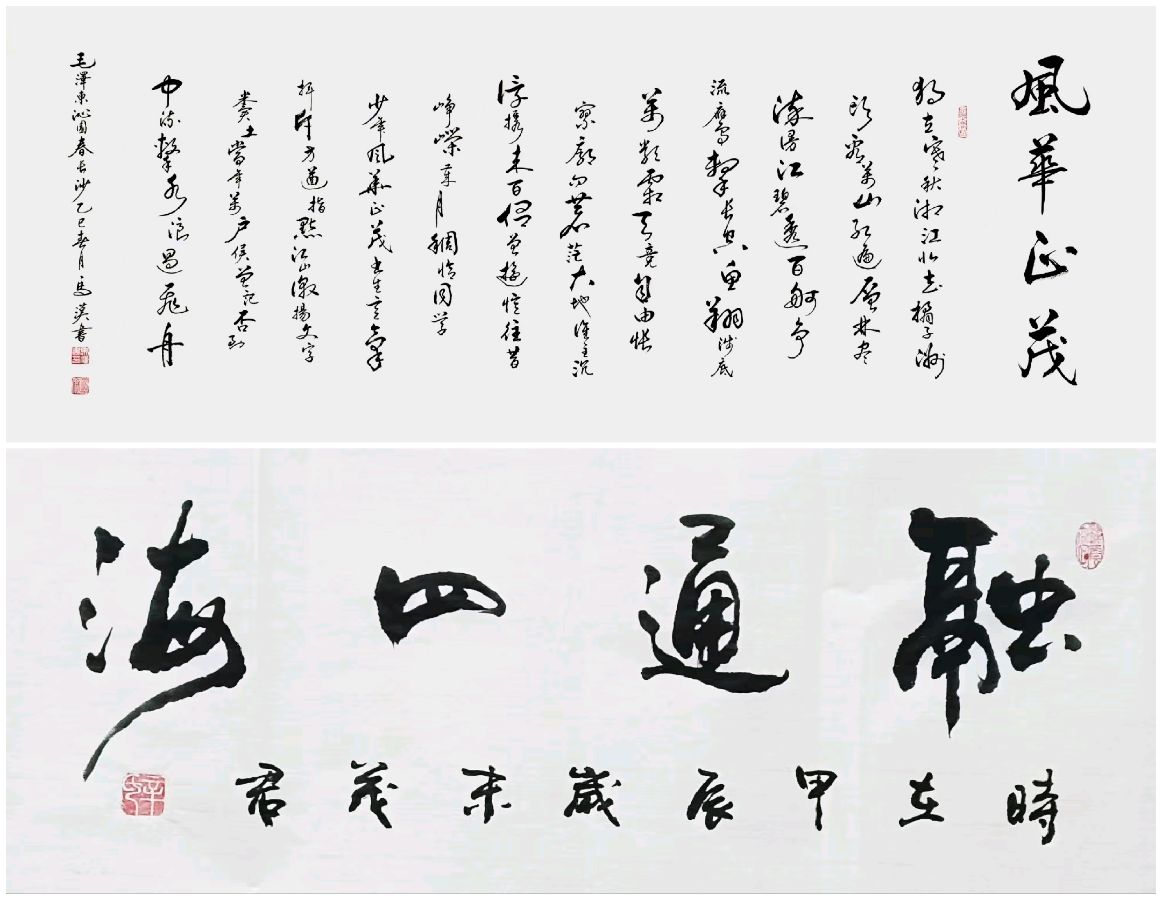 風華正茂
獨立寒秋湘江北去橘子洲
頭看萬山紅遍層林盡
染漫江碧透百舸爭
流鷹擊長空魚翔淺底
萬類霜天競自由悵
寥廓問蒼茫大地誰主沉
浮攜來百侶曾遊憶往昔
崢嶸歲月稠恰同學
少年風華正茂書生意氣
揮斥方遒指點江山激揚文字
糞土當年萬戶侯曾記否到
中流擊水浪遏飛舟
毛澤東沁園春長沙乙巳春月馬書
融通四海
時在甲辰歲末茂君